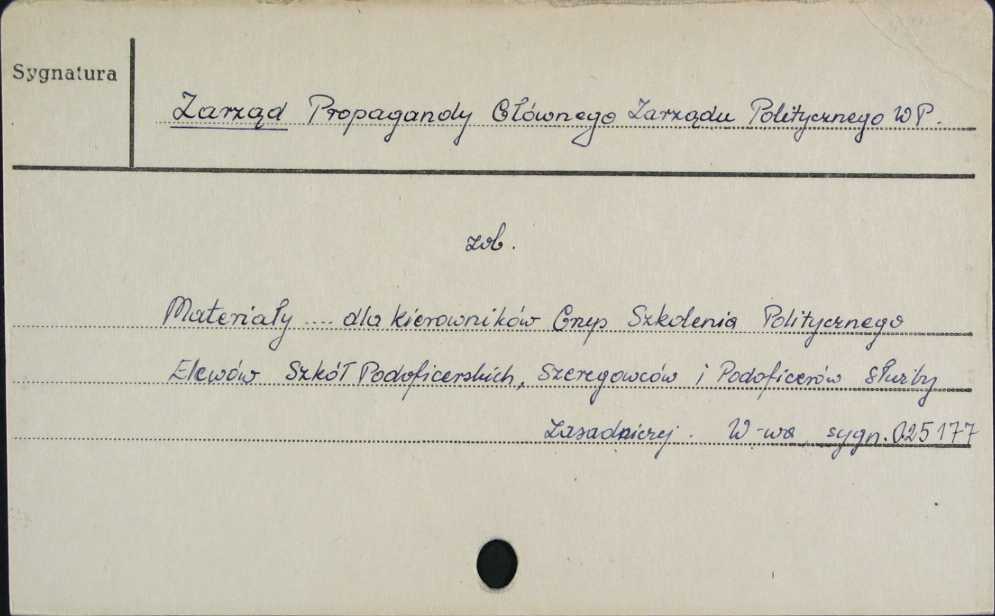 Sygnatura
Zarząd Propagandy Głównego Zarządu Politycznego WP.
zob.
Materiały .... dla kierowników Grup Szkolenia Politycznego
Elewów Szkół Podoficerskich, Szeregowców i Podoficerów służby
Zasadniczej. W-wa, sygn. 025177